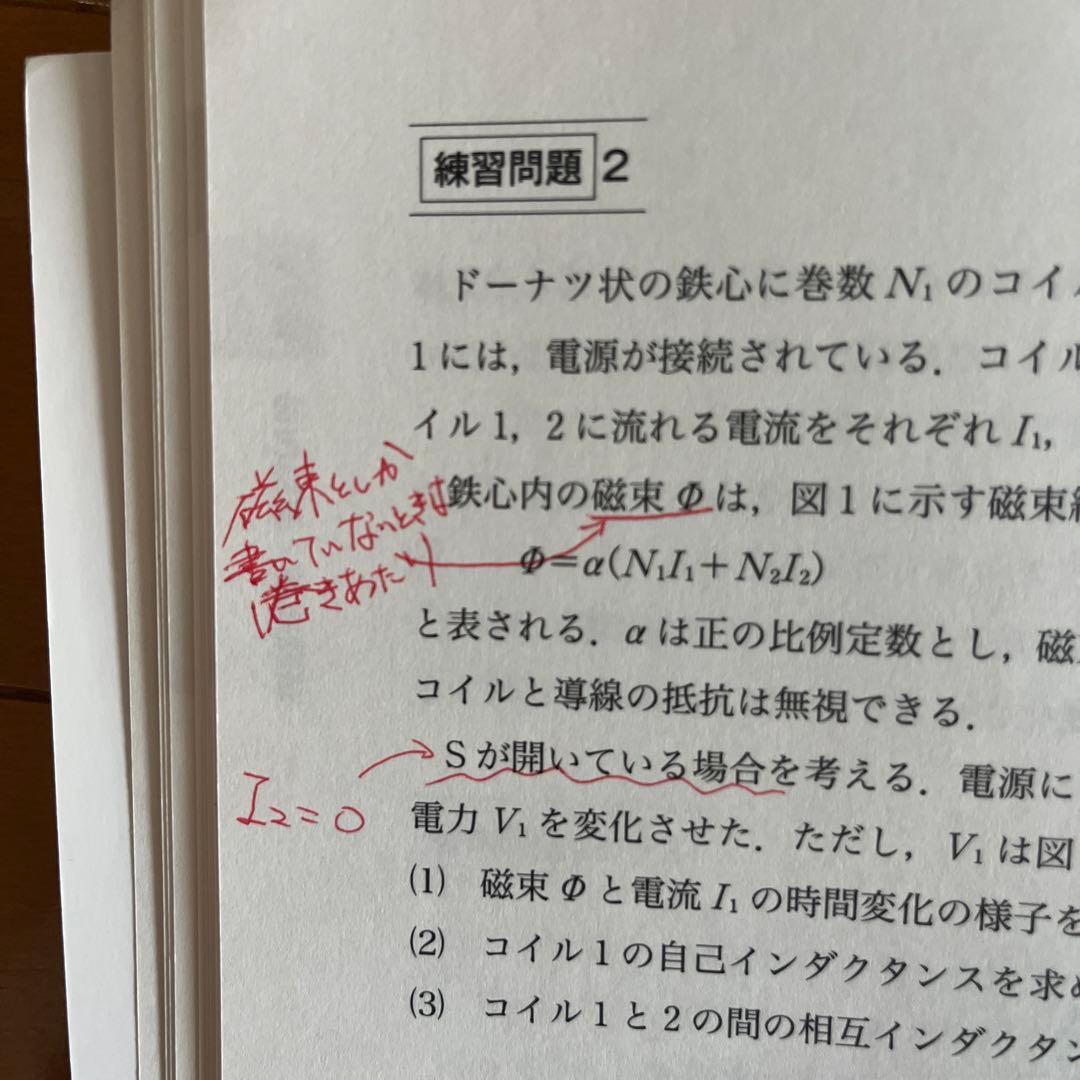 練習問題 2
ドーナツ状の鉄心に巻数 N₁ のコイ
1には，電源が接続されている．コイ
イル1，2に流れる電流をそれぞれ I₁，
鉄心内の磁束 Φ は，図1に示す磁束
Φ=α(N₁I₁+N₂I₂)
と表される．αは正の比例定数とし，磁
コイルと導線の抵抗は無視できる．
Sが開いている場合を考える．電源に
電力 V₁ を変化させた．ただし，V₁ は図
(1) 磁束 Φ と電流 I₁ の時間変化の様子を
(2) コイル1の自己インダクタンスを求
(3) コイル1と2の間の相互インダクタン
磁束としか
書いていないときは
1巻きあたり
I₂=0